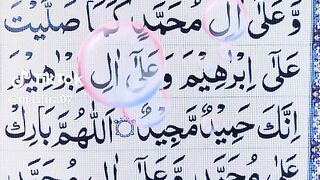 وَّعَلٰٓى اٰلِ مُحَمَّدٍ كَمَا صَلَّيْتَ
عَلٰٓى اِبْرٰهِيْمَ وَعَلٰٓى اٰلِ اِبْرٰهِيْمَ
اِنَّكَ حَمِيْدٌ مَّجِيْدٌ ۝ اَللّٰهُمَّ بَارِكْ
عَلٰى مُحَمَّدٍ وَّعَلٰٓى اٰلِ مُحَمَّدٍ
TikTok